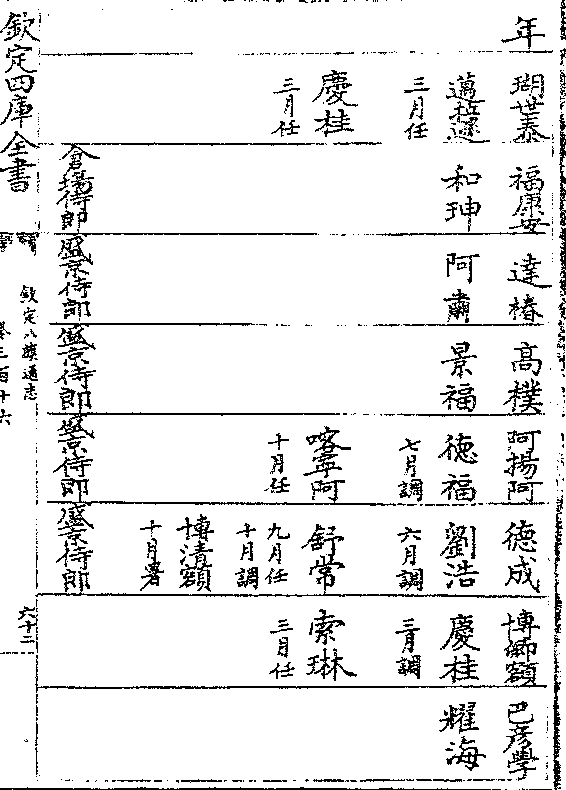 年
瑚世泰
邁拉遜
三月任
慶桂
三月任
福康安
和珅
倉場侍郎
達椿
阿肅
盛京侍郎
高樸
景福
盛京侍郎
阿揚阿
德福
七月調
喀寧阿
十月任
盛京侍郎
德成
劉浩
六月調
舒常
九月任
十月調
博清額
十月署
盛京侍郎
博師額
慶桂
三月調
索琳
三月任
巴彦學
耀海
欽定四庫全書
欽定八旗通志
卷三百十六
六十二